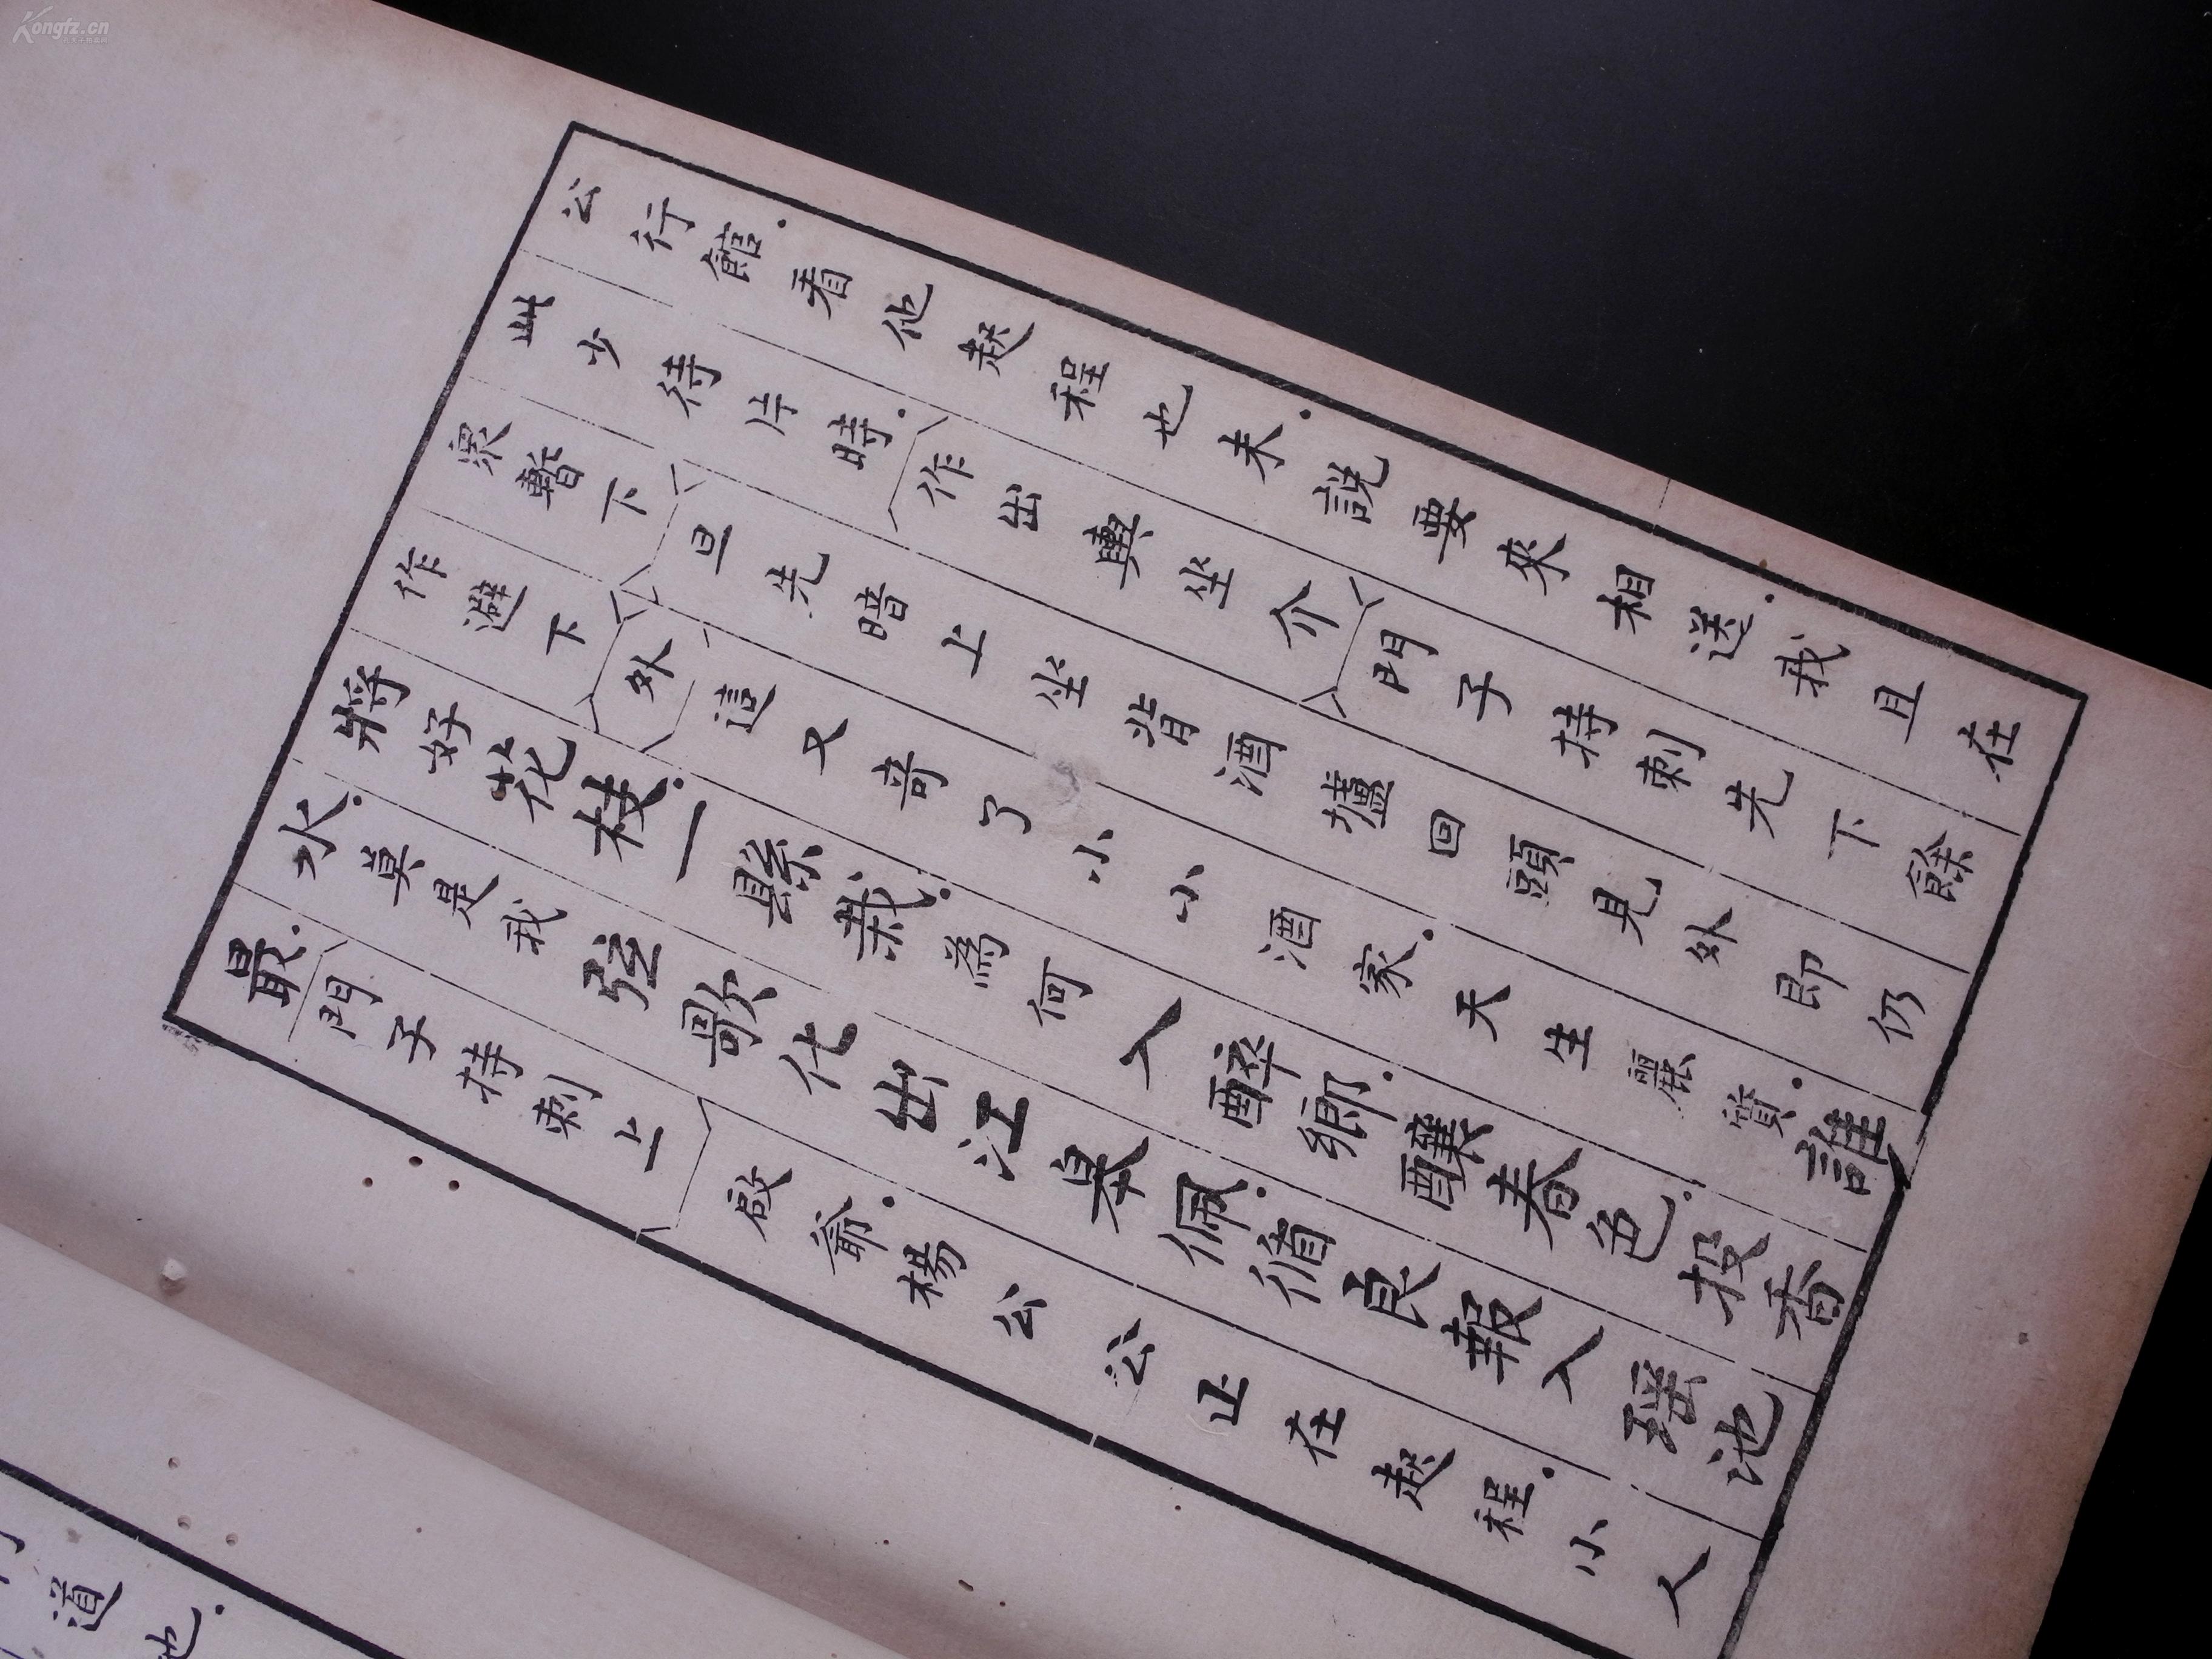 Kongfz.cn
公行館.看他起程也未.説要來相送.我且在
此少待片時.〔作出輿坐介〕〔門子持刺先下餘
衆暫下〕〔旦先暗上坐背酒壚回頭見外即仍
作避下〕〔外〕這又奇了小小酒家.天生麗質.誰
將好花枝.一縣栽.為何入醉鄉.釀春色.投香
水.莫是我弦歌化出江皋佩.循良報入瑤池
最.〔門子持刺上〕啟爺.楊公公正在起程.小人
道